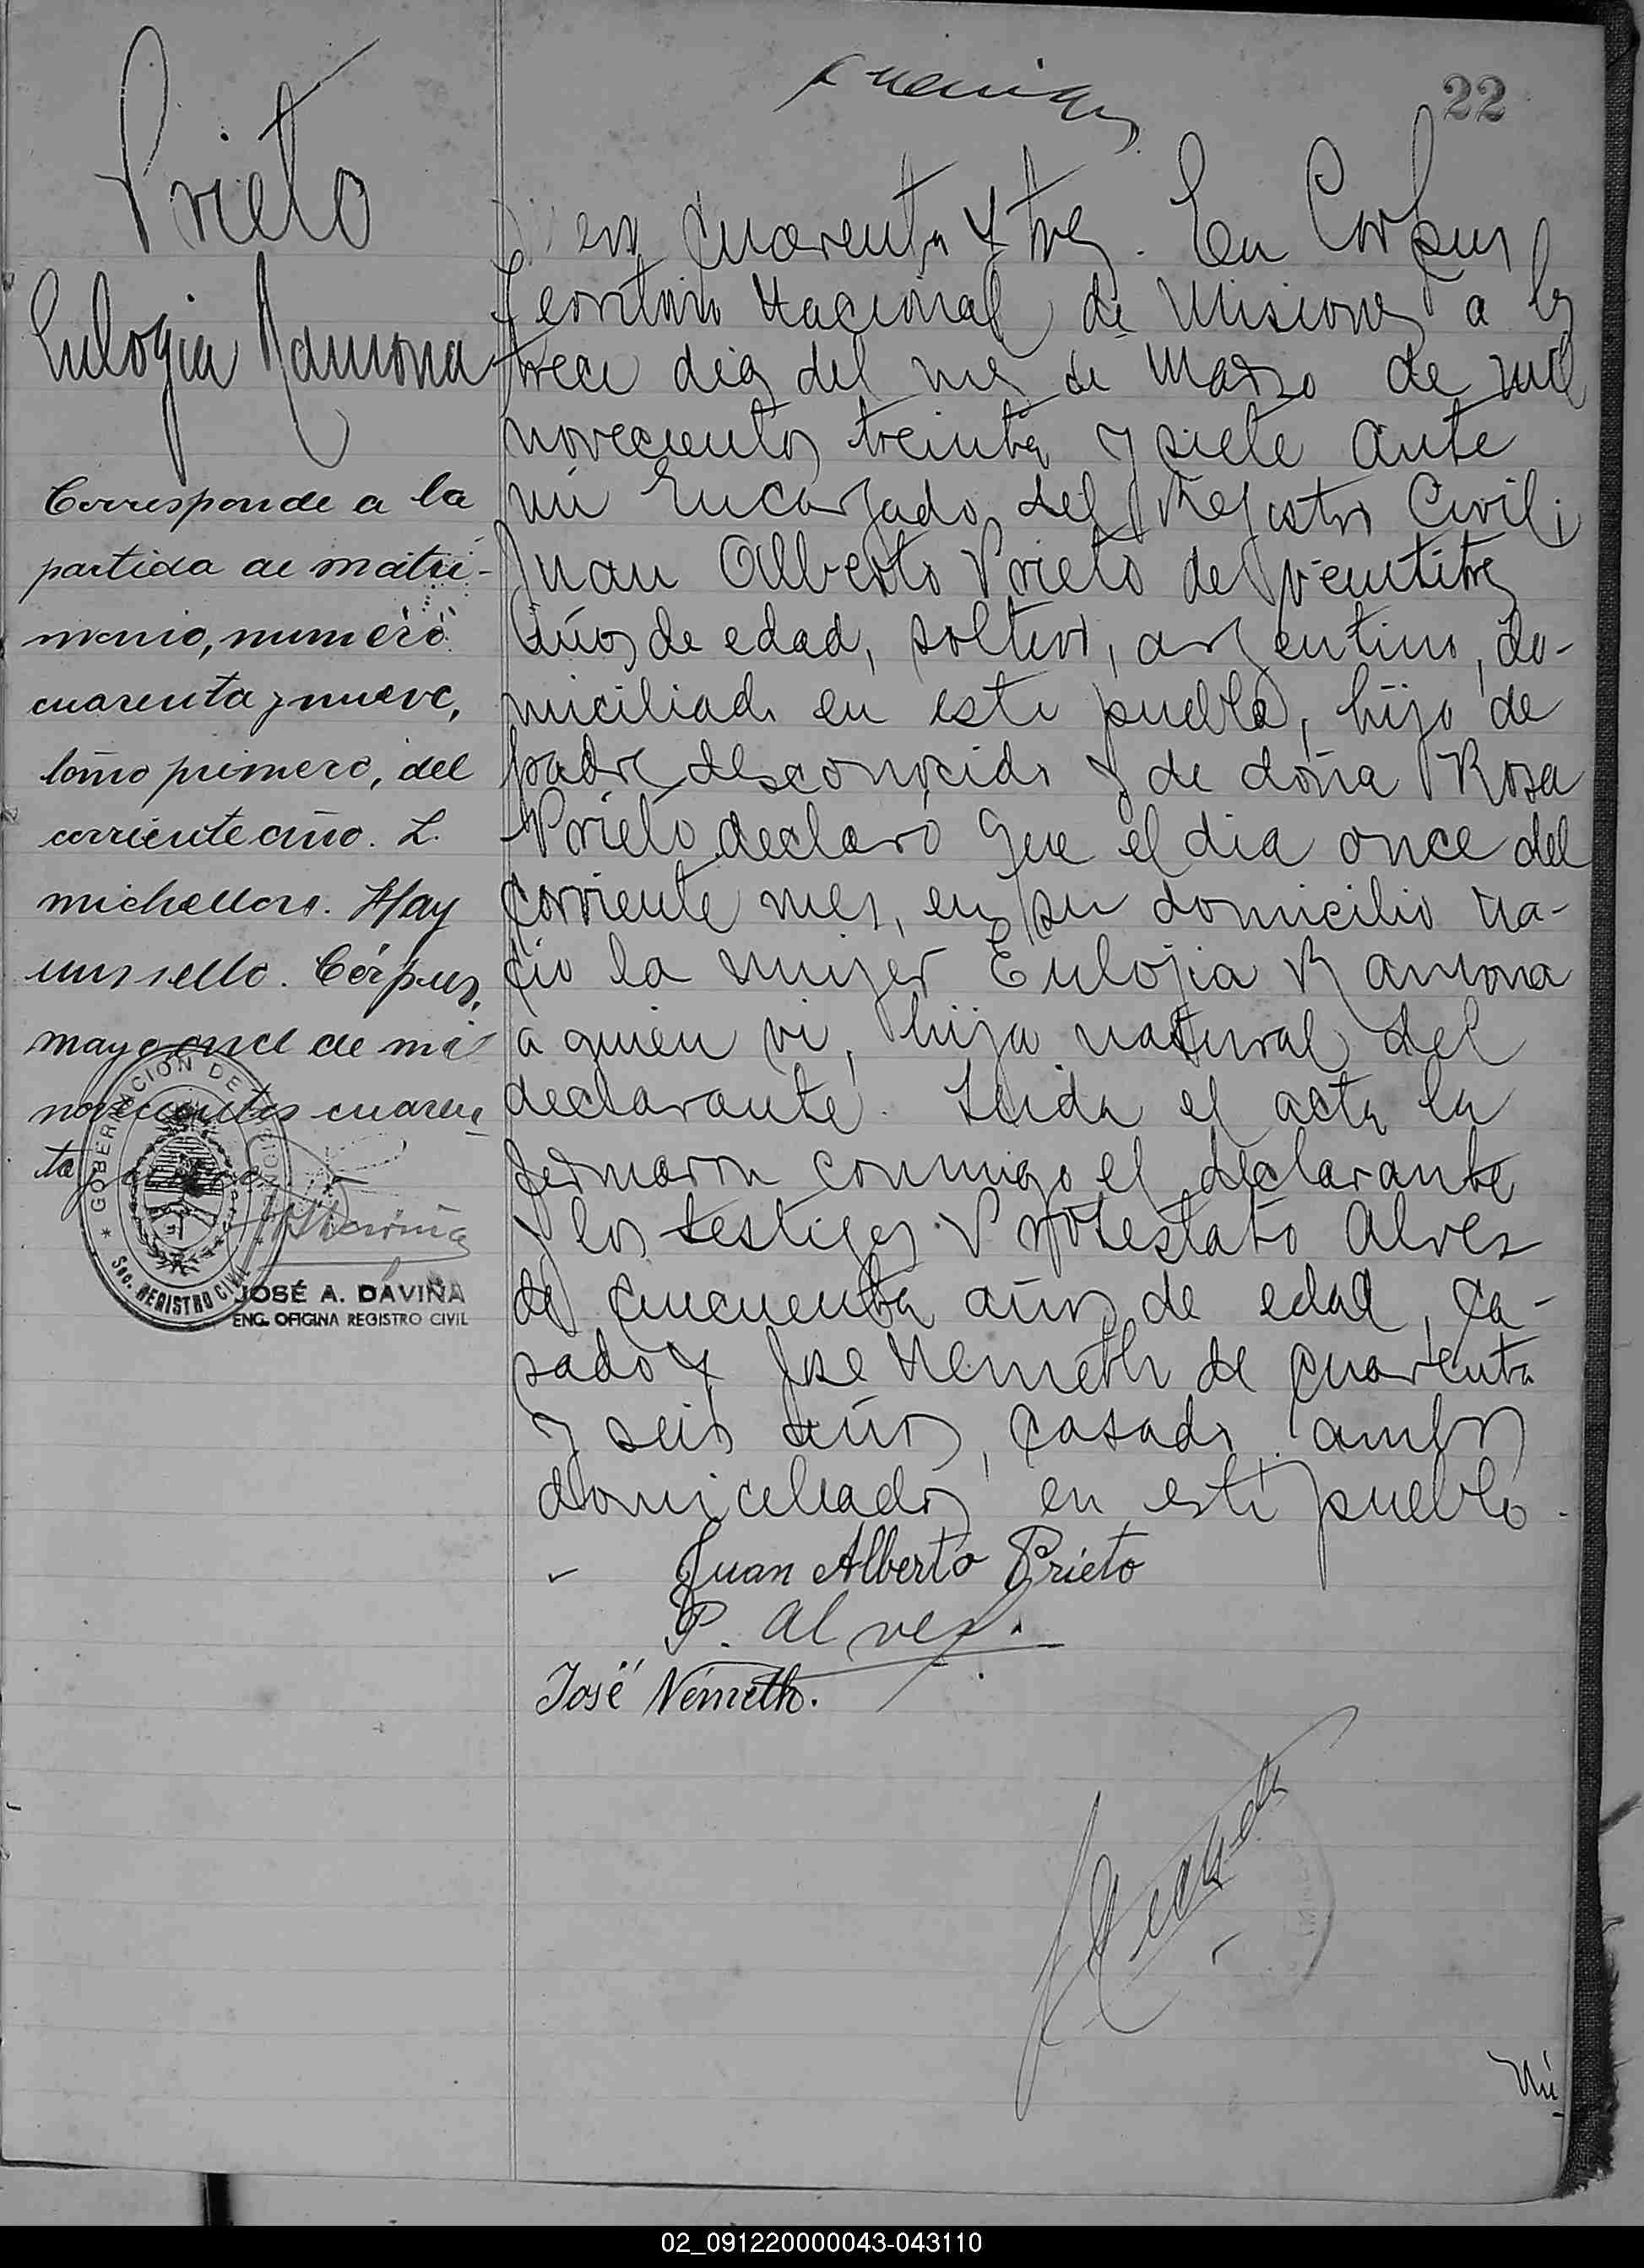 22
Prieto
Eulogia Ramona
Corresponde a la
partida de matri-
monio, numero
cuarenta y nueve,
tomo primero, del
corriente año. L.
Michellons. Hay
un sello. Córpus,
mayo once de mil
novecientos cuaren
ta y
GOBERNACION DE
Sec. REGISTRO CIVIL
JOSÉ A. DAVIÑA
ENG. OFICINA REGISTRO CIVIL
cuarenta y tres. En Corpus
Territorio Nacional de Misiones a los
trece dias del mes de Marzo de mil
novecientos treinta y siete ante
mi Encargado del Rejistro Civil;
Juan Alberto Prieto de veintitres
años de edad, soltero, argentino, do-
miciliado en este pueblo, hijo de
padre desconocido y de doña Rosa
Prieto declaró que el dia once del
corriente mes, en su domicilio na-
cio la mujer Eulojia Ramona
a quien vi, hija natural del
declarante. Leida el acta la
firmaron conmigo el declarante
y los testigos Protestato Alves
de cincuenta años de edad, ca-
sado y Jose Nemeth de cuarenta
y seis años, casado ambos
domiciliados en este pueblo.
Juan Alberto Prieto
P. Alves.
José Németh.
Nú-
02_091220000043-043110